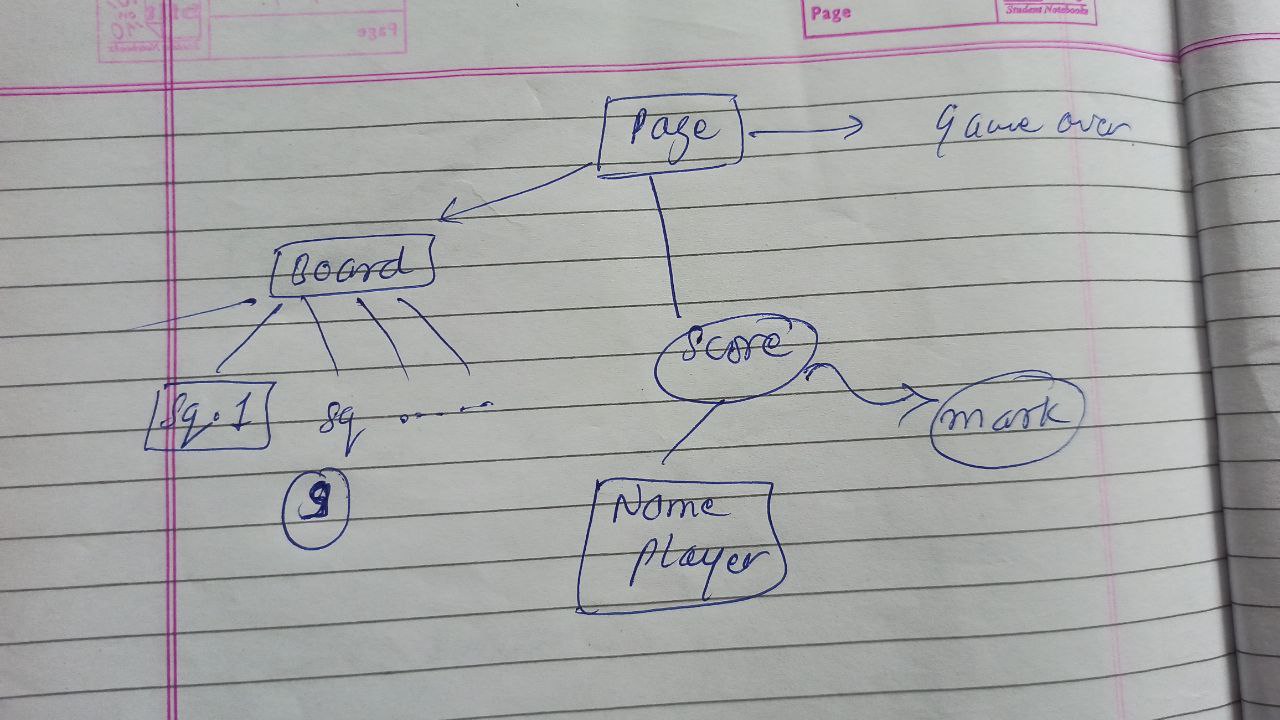 Page
Student Notebooks
Page
Page
game over
Board
Score
Sq. 1
Sq
mark
9
Name
Player